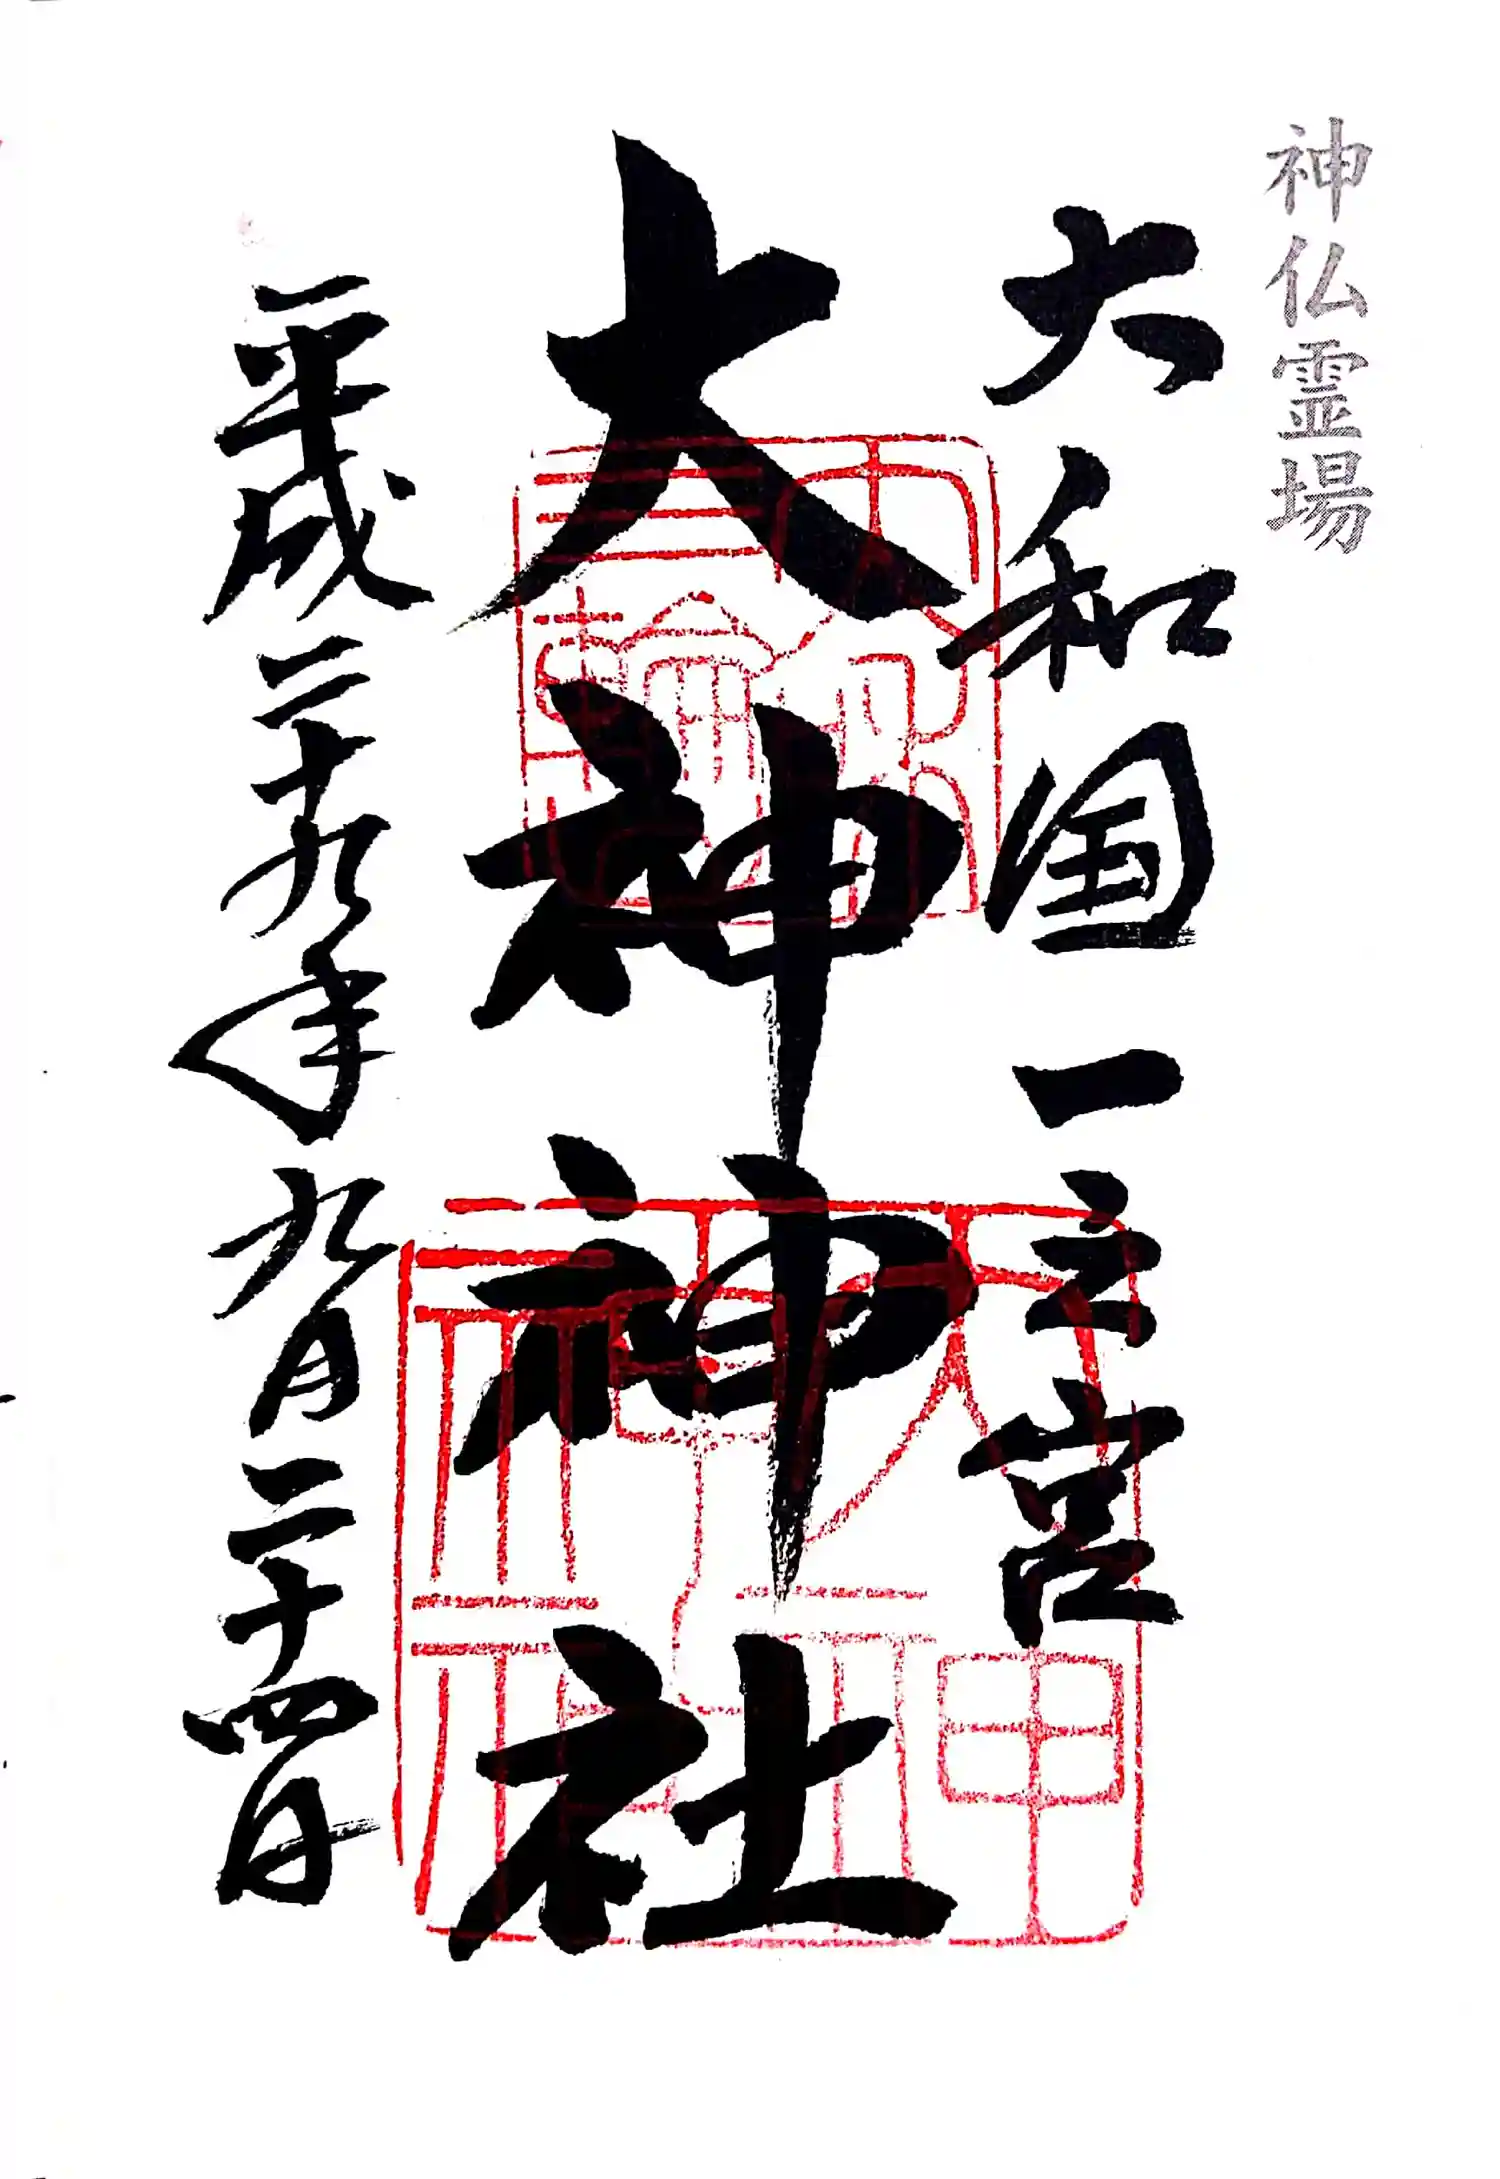 神仏霊場
大和国一之宮
大神神社
平成二十九年九月二十四日